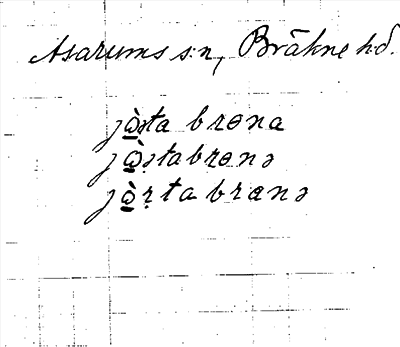 Asarums s:n, Bräkne h:d.
jò̲əta brɵna
jò̲ə̣tabrɵnə
jò̲ṛtabrɵnə